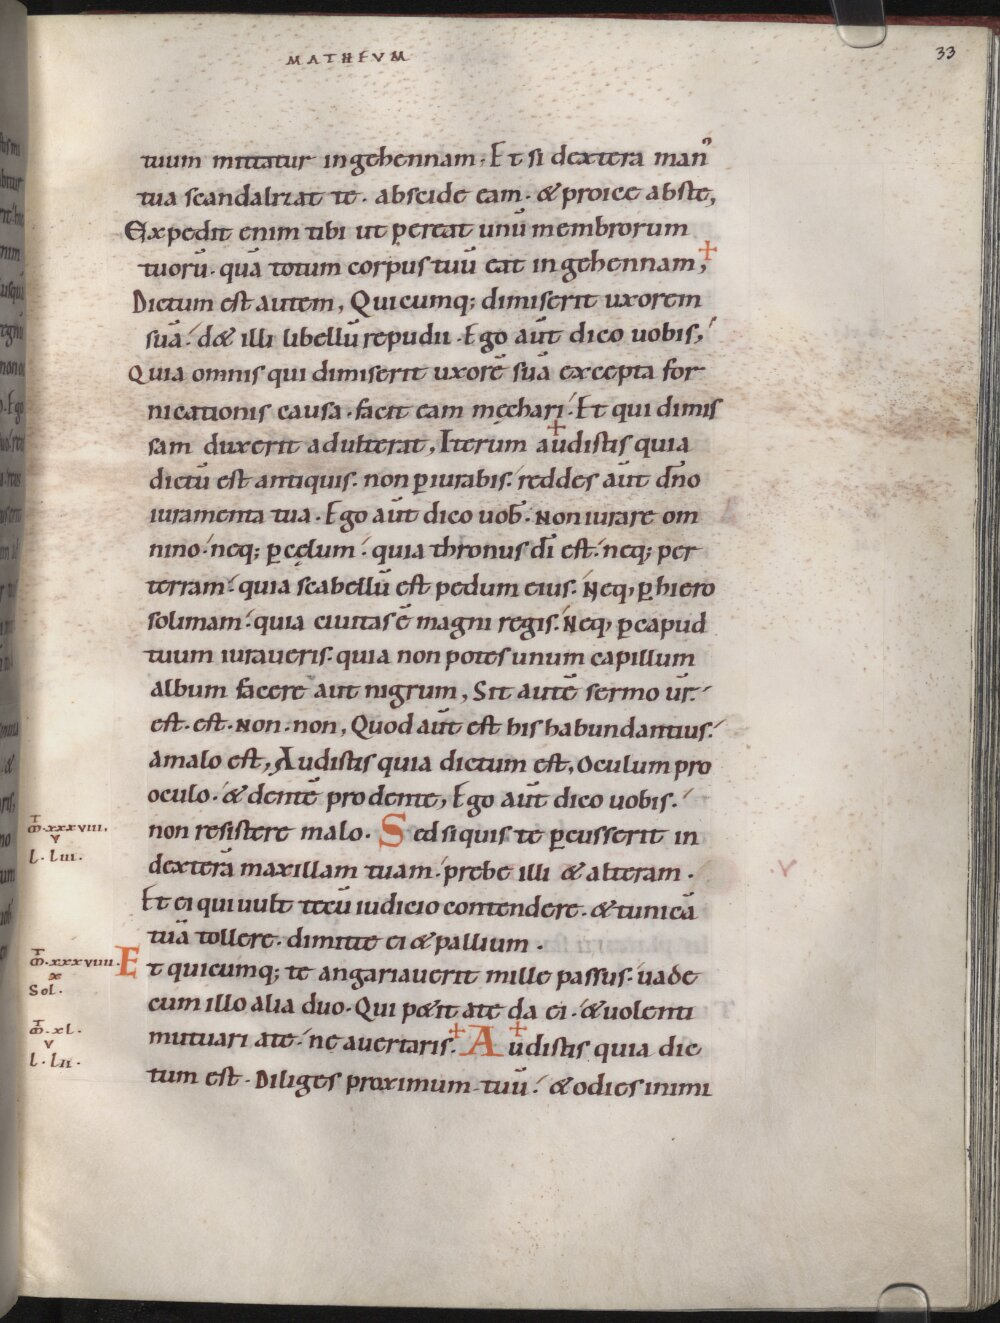 MATHEVM
33
tuum mittatur ingehennam; Et si dextera man᾽
tua scandalizat te. abscide eam. & proice abste,
Expedit enim tibi ut pereat unū membrorum
tuorū. quā totum corpus tuū eat ingehennam;
Dictum est autem, Quicumq; dimiserit uxorem
suā. d& illi libellū repudii. Ego aūt dico uobis,
Quia omnis qui dimiserit uxorē suā excepta for
nicationis causa. facit eam męchari. Et qui dimis
sam duxerit adulterat, Iterum audistis quia
dictū est antiquis. non ꝑiurabis. reddes aūt dn̄o
iuramenta tua. Ego aūt dico uob̄. Non iurare om
nino. neq; ꝑ cęlum. quia thronus dī est. neq; per
terram. quia scabellū est pedum eius. Neq; ꝑ hiero
solimam. quia ciuitas ē magni regis. Neq; ꝑ capud
tuum iuraueris. quia non potes unum capillum
album facere aut nigrum, Sit autē sermo ur̄.
est. est. Non. non, Quod aūt est his habundantius.
Amalo est, Audistis quia dictum est, Oculum pro
oculo. & dentē pro dente, Ego aūt dico uobis.
non resistere malo. Sed siquis te ꝑcusserit in
dexterā maxillam tuam. prebe illi & alteram.
Et ei qui uult tecū iudicio contendere. & tunicā
tuā tollere. dimitte ei & pallium.
Et quicumq; te angariauerit mille passus. uade
cum illo alia duo. Qui p&it ate da ei. & uolenti
mutuari ate. ne auertaris. Audistis quia dic
tum est. Diliges proximum tuū. & odies inimi
m̄.xxxviii.
v
l. Liii.
m̄.xxxviiii.
x
Sol.
m̄.xl.
v
l. Lii.